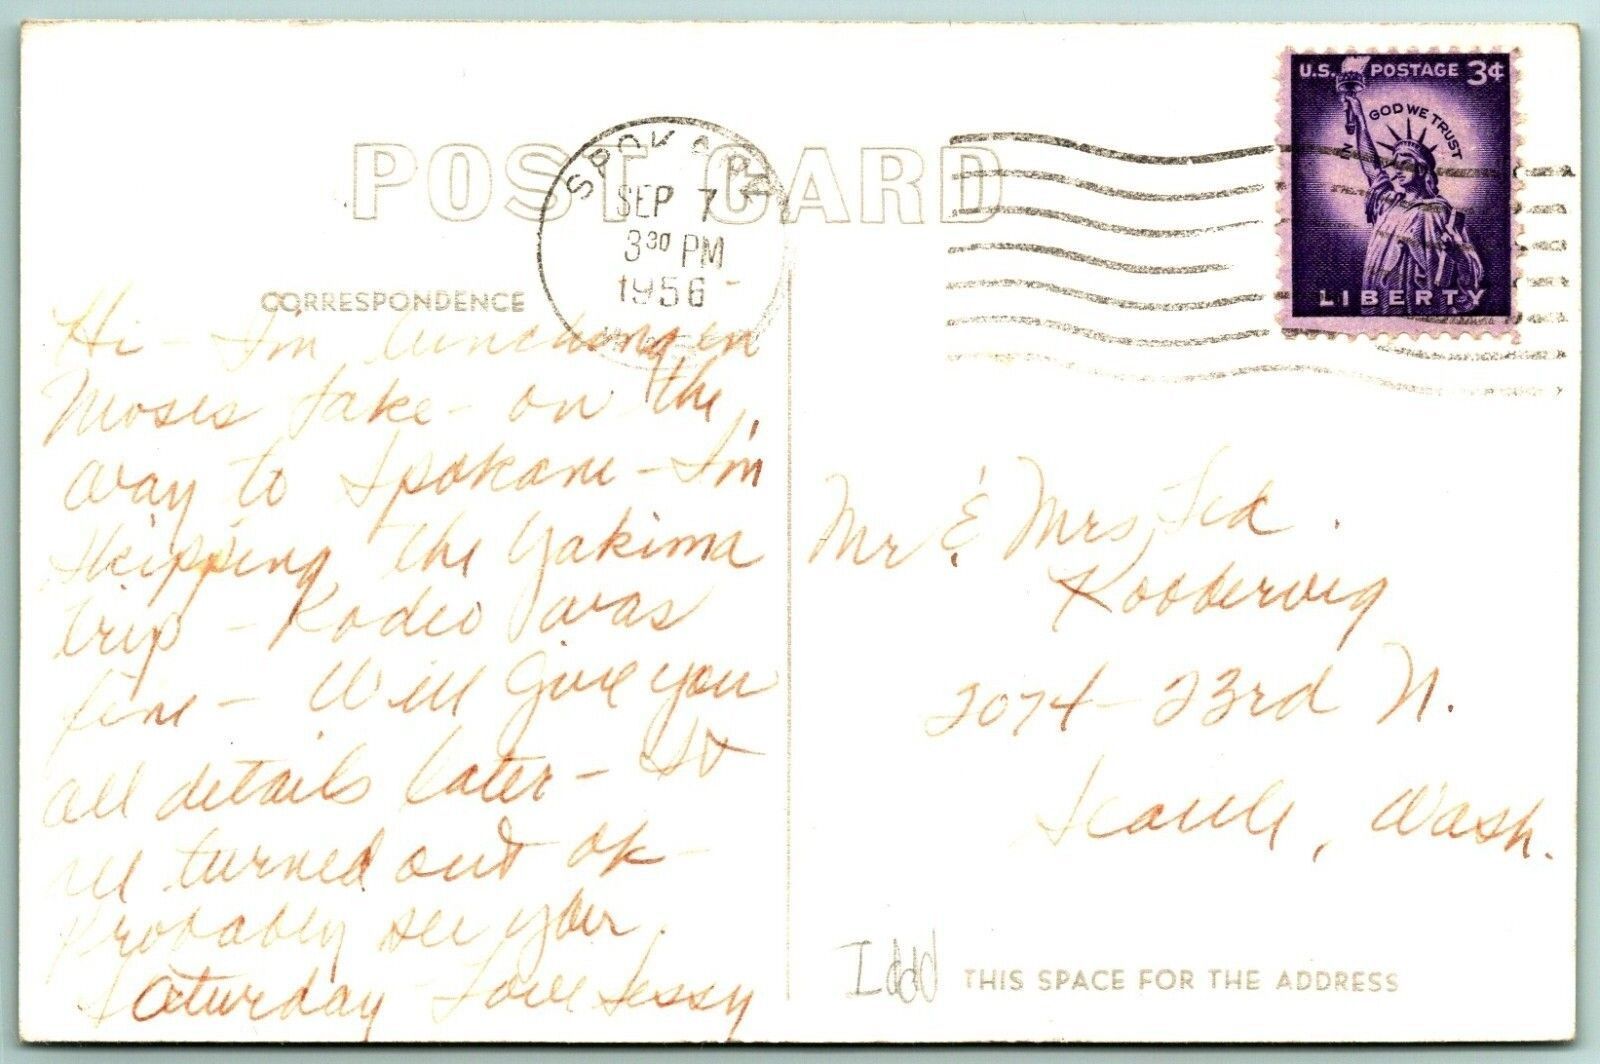 U.S. POSTAGE 3¢
IN GOD WE TRUST
LIBERTY
POST CARD
SPOKANE
SEP 7
3 30 PM
1956
CORRESPONDENCE
Hi - I'm lunching in
Moses Lake - on the
way to Spokane - I'm
skipping the Yakima
trip - Rodeo was
fine - Will give you
all details later - It
all turned out ok -
Probably see you
Saturday - Love Jessy
Mr & Mrs Ted
2074 - 23rd N.
Seattle, Wash.
THIS SPACE FOR THE ADDRESS